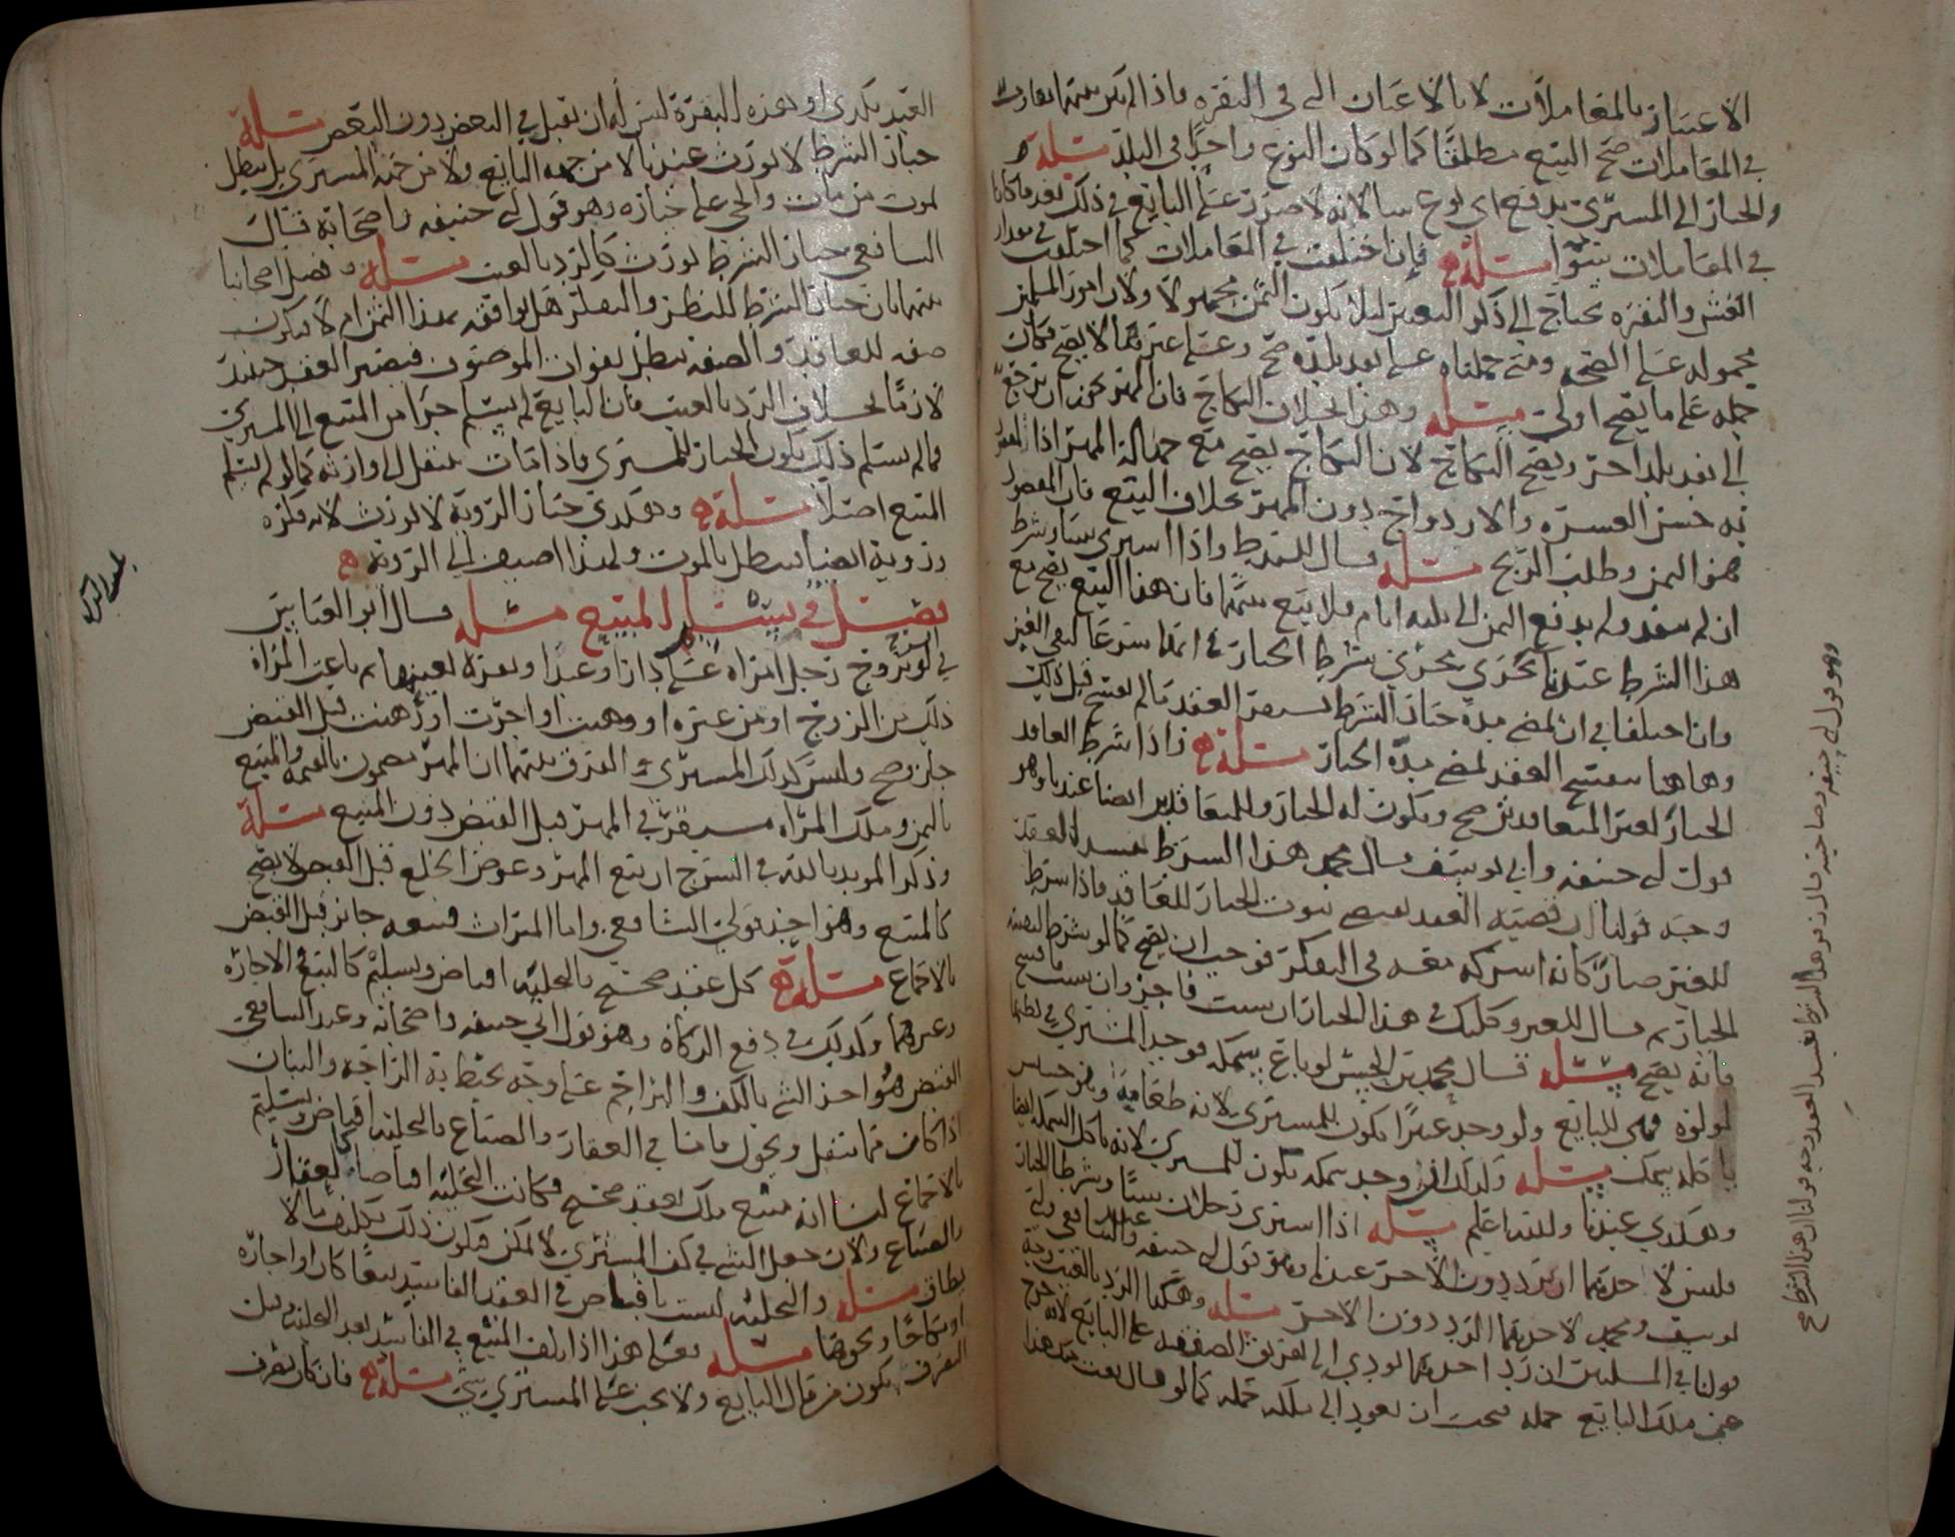 الاعتبار بالمعاملات لا بالاعيان التي في النقره فاذا لم يكن بينهما تفاوت
في المعاملات صح البيع مطلقا كما لو كان النوع واحدا في البلد مسئلة
والخيار الى المشتري يدفع اي نوع شا لانه لا ضرر على البايع في ذلك بعد ما كانا
في المعاملات سوا مسئلة فان اختلفت في المعاملات كما اختلفت في مقدار
الغش والنقره يحتاج الى ذكر التعيين ليلا يكون الثمن مجهولا ولان امور المسلمين
محموله على الصحه ومتى حملناه على نقد بلده صح وعلى غيرهما لا يصح فكان
حمله على ما يصح اولى مسئلة وهذا بخلاف النكاح فان المهر يجوز ان يرجع
الى نقد بلد اخر ويصح النكاح لان النكاح يصح مع جهالة المهر اذا المقصود
به حسن العشره والازدواج دون المهر بخلاف البيع فان المقصود
هو الثمن وطلب الربح مسئلة قال واذا اشترى شيا وشرط
ان لم ينقد ولم يدفع الثمن الى ثلثه ايام فلا بيع بينهما فان هذا البيع يصح مع
هذا الشرط عندنا يجري مجرى شرط الخيار
وان اختلفا في ان لمضي مدة خيار الشرط يستقر العقد ما لم يفسخ قبل ذلك
وهاهنا ينفسخ العقد لمضي مدة الخيار مسئلة واذا شرط العاقد
الخيار لغير المتعاقدين صح ويكون له الخيار وللمتعاقدين ايضا عندنا وهو
قول ابي حنيفه وابي يوسف وقال محمد هذا الشرط يفسد العقد
وجه قولنا ان قضية العقد تقتضي ثبوت الخيار للعاقد فاذا شرط
للغير صار كانه اشركه معه في التفكر فوجب ان يصح كما لو شرط لنفسه
الخيار ثم قال للغير وكلتك في هذا الخيار ان شيت فاجز وان شيت فافسخ
فانه يصح مسئلة قال محمد بن الجيش لو باع سمكه فوجد المشتري في بطنها
لولوه فهي للبايع ولو وجد عنبرا يكون للمشتري لانه طعامها
وكذلك ان وجد سمكه تكون للمشتري لانه ياكل السمك ايضا
وهكذي عندنا والله اعلم مسئلة اذا اشترى رجلان شيا وشرطا الخيار
فليس لاحدهما ان يرد دون الاخر عندنا وهو قول ابي حنيفه وعند
يوسف ومحمد لاحدهما الرد دون الاخر مسئلة وهكذا الرد بالعيب وجه
قولنا في المسلتين ان رد احدهما يودي الى تفريق الصفقه على البايع لانه خرج
عن ملك البايع جمله فيجب ان يعود الى ملكه جمله كما لو قال بعت منك هذا
وهو قول ابي حنيفه وصاحبيه وقال زفر هذا الشرط يفسد العقد وجه قولنا ان هذا الشرط صح
العبد بكذى او هذه البقرة ليس له ان يقبل في البعض دون البعض مسئلة
خيار الشرط لا يورث عندنا لا من جهه البايع ولا من جهه المشتري بل يبطل
بموت من مات والحي على خياره وهو قول ابي حنيفه واصحابه قال
الشافعي خيار الشرط يورث كالرد بالعيب مسئلة وفصل اصحابنا
بينهما بان خيار الشرط للنظر والتفكر هل يوافقه بهذا الثمن ام لا فيكون
صفه للعاقد والصفه تبطل بفوات الموصوف فيصير العقد حينيذ
لازما بخلاف الرد بالعيب فان البايع لم يسلم جزا من المبيع الى المشتري
فما لم يسلم ذلك يكون الخيار للمشتري فاذا مات ينتقل الى وارثه كما لو لم يسلم
المبيع اصلا مسئلة وهكذي خيار الرويه لا يورث لانه فكره
ورويه ايضا يبطل بالموت ولهذا اضيف الى الرويه
فصل في تسليم المبيع مسئلة قال ابو العباس
في لو تزوج رجل امراه على دار او عبد او بقرة بعينها ثم باعت المراة
ذلك من الزوج او من غيره او وهبت او اجرت او رهنت قبل القبض
جاز وصح وليس كذلك المشتري والفرق بينهما ان المهر مضمون بالقيمه والمبيع
بالثمن وملك المراه مستقر في المهر قبل القبض دون المبيع مسئلة
وذكر المويد بالله في الشرح ان بيع المهر وعوض الخلع قبل القبض لا يصح
كالمبيع وهو احد قولي الشافعي واما الميراث فبيعه جايز قبل القبض
بالاجماع مسئلة كل عقد صحيح بالتخليه اقباض وتسليم كالبيع والاجاره
وغيرهما وكذلك في دفع الزكاة وهو قول ابي حنيفه واصحابه وعند الشافعي
القبض هو اخذ الشي بالكف والبراجم على وجه يحتط به الراجه والبنان
اذا كان مما ينتقل ويحول فاما في العقار والضياع بالتخليه اقباض وتسليم
بالاجماع لنا انه مبيع ملك بعقد صحيح فكانت التخليه اقباضا كالعقار
والضياع ولان جعل الشي في كف المشتري لا يمكن فيكون ذلك تكليف ما لا
يطاق مسئلة والتخليه ليست باقباض في العقد الفاسد بيعا كان او اجاره
او نكاحا ونحوها مسئلة فعلى هذا اذا تلف المبيع في الفاسد بعد التخليه وقبل
التصرف يكون من مال البايع ولا يجب على المشتري شي مسئلة فان كان تصرف